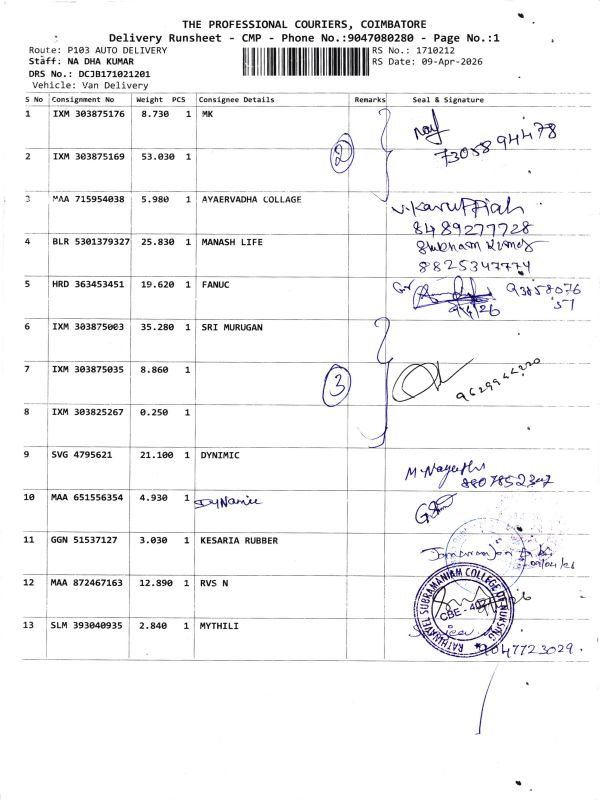 THE PROFESSIONAL COURIERS, COIMBATORE
Delivery Runsheet - CMP - Phone No.:9047080280 - Page No.:1
Route: P103 AUTO DELIVERY RS No.: 1710212
Staff: NA DHA KUMAR RS Date: 09-Apr-2026
DRS No.: DCJB171021201
Vehicle: Van Delivery
S No Consignment No Weight PCS Consignee Details Remarks Seal & Signature
1 IXM 303875176 8.730 1 MK
7305894478
2 IXM 303875169 53.030 1 2
3 MAA 715954038 5.980 1 AYAERVADHA COLLAGE
8489277728
4 BLR 5301379327 25.830 1 MANASH LIFE
8825347774
5 HRD 363453451 19.620 1 FANUC 93858076
51
9/4/26
6 IXM 303875003 35.280 1 SRI MURUGAN
7 IXM 303875035 8.860 1 3
8 IXM 303825267 0.250 1
9 SVG 4795621 21.100 1 DYNIMIC
8807852347
10 MAA 651556354 4.930 1 DyNamic
11 GGN 51537127 3.030 1 KESARIA RUBBER
09/04/26
12 MAA 872467163 12.890 1 RVS N
RATHNAVEL SUBRAMANIAM COLLEGE OF NURSING
13 SLM 393040935 2.840 1 MYTHILI
9047723029